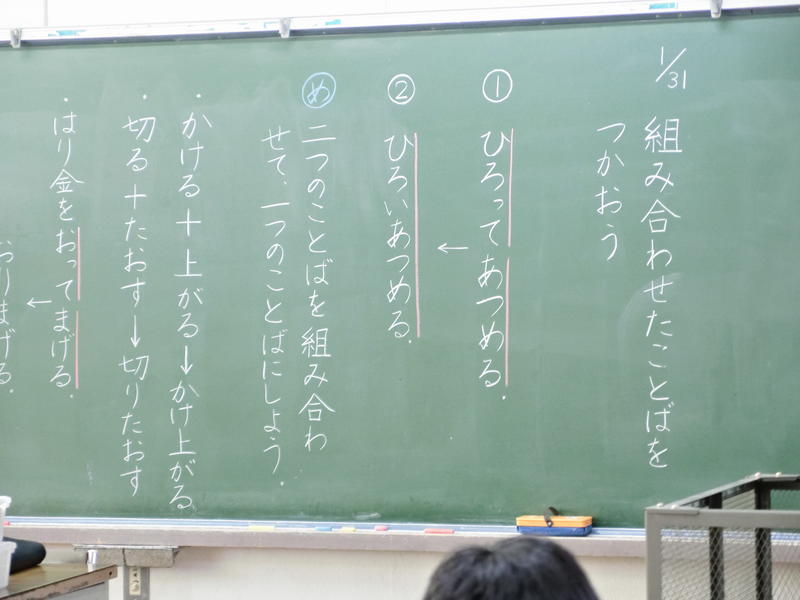 1/31
組み合わせたことばを
つかおう
① ひろってあつめる.
←
② ひろいあつめる.
め 二つのことばを組み合わ
せて、一つのことばにしよう.
・かける+上がる→かけ上がる
・切る+たおす→切りたおす
・はり金をおってまげる.
←
おりまげる.